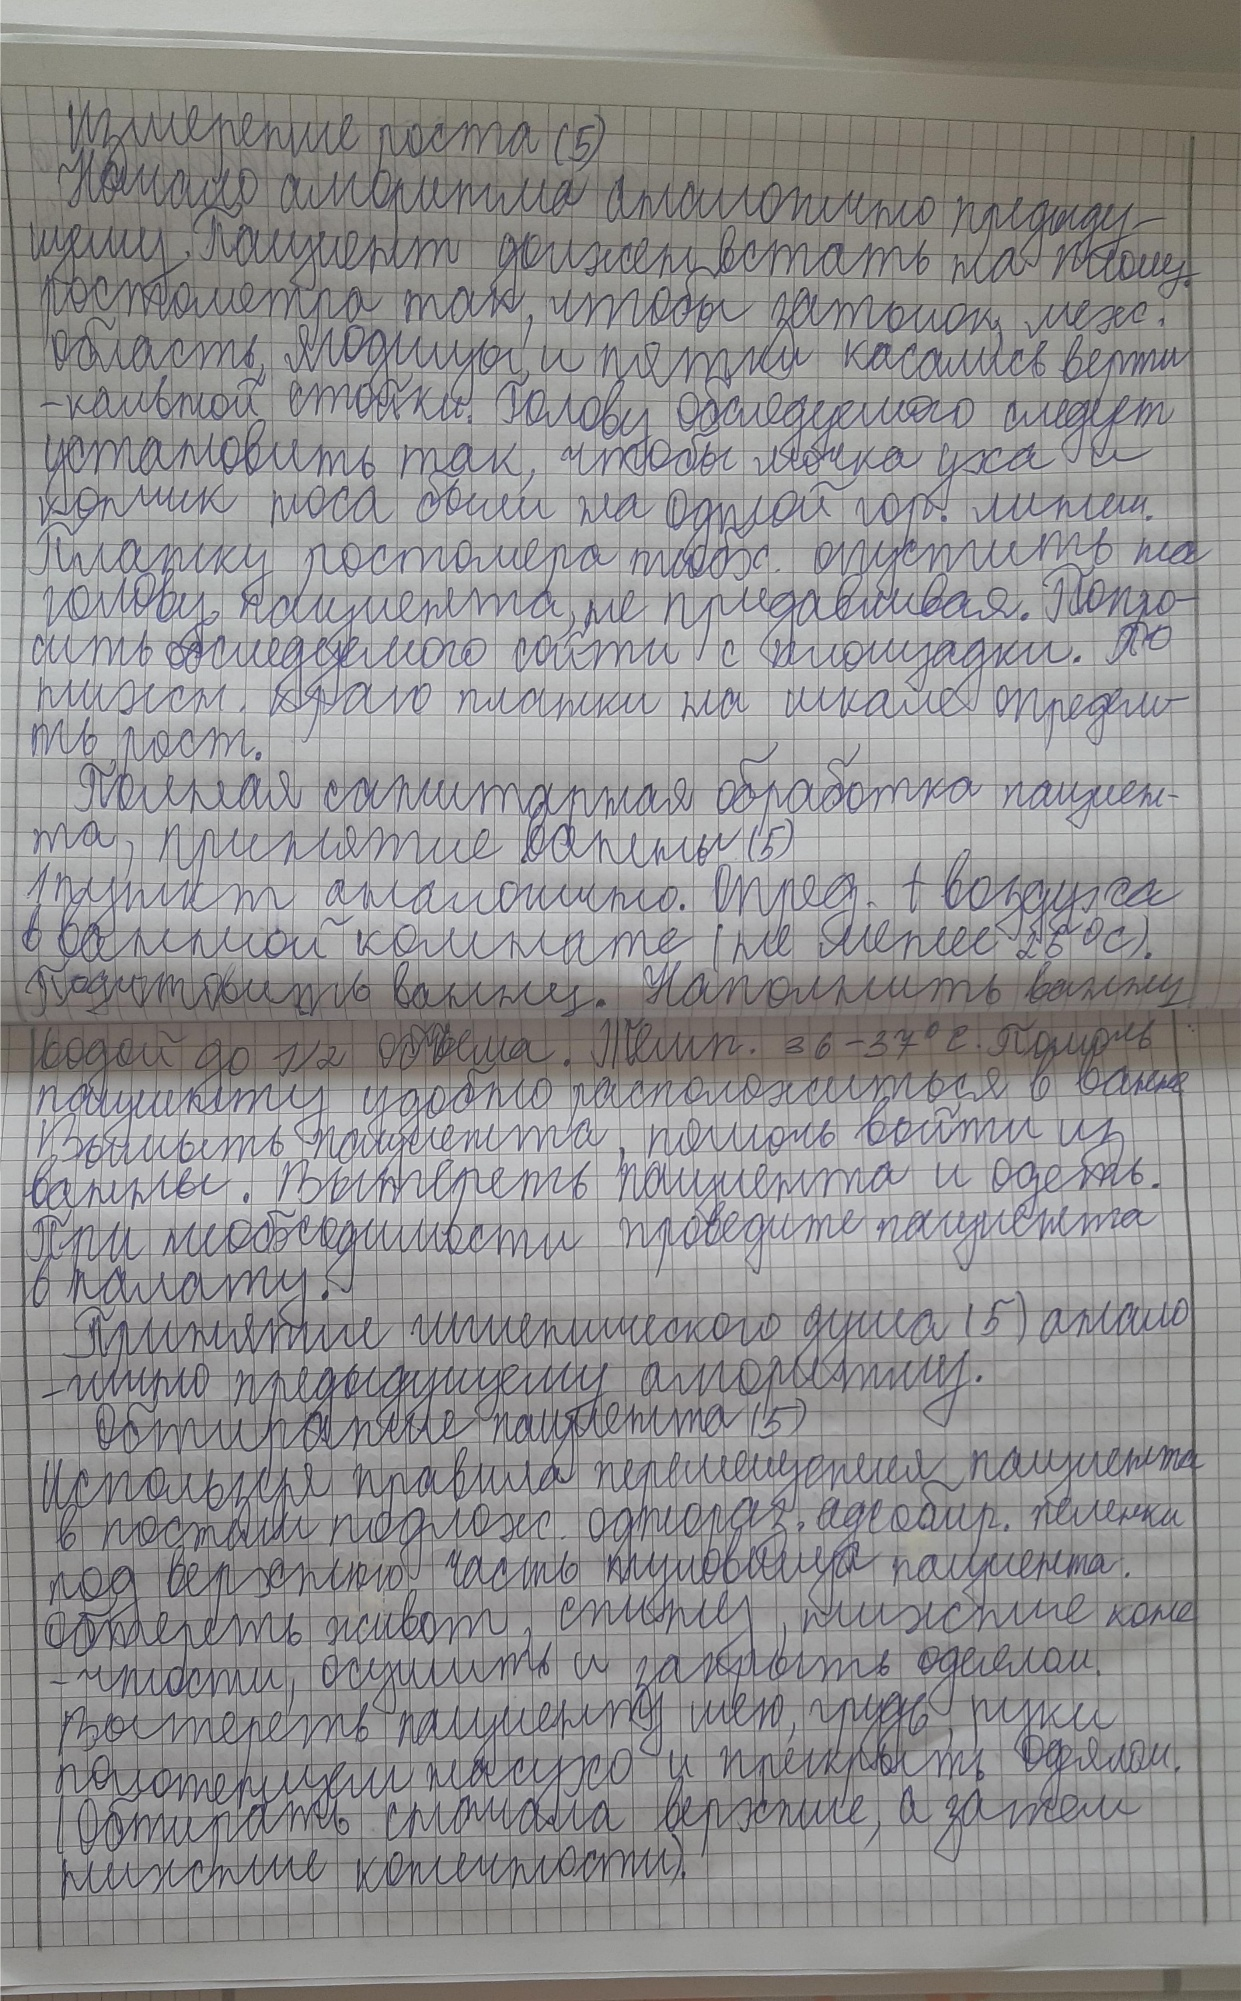 Измерение роста (5)
Начало алгоритма аналогично предыду-
щему. Пациент должен встать на площ.
ростометра так, чтобы затылок, меж.
область, ягодицы и пятки касались верти
-кальной стойки. Голову обследуемого следует
установить так, чтобы мочка уха и
кончик носа были на одной гор. линии.
Планку ростомера необх. опустить на
голову пациента, не придавливая. Попро-
сить обследуемого сойти с площадки. По
нижн. краю планки на шкале определи-
ть рост.
Полная санитарная обработка пациен-
та, принятие ванны (5)
1 пункт аналогично. Опред. t воздуха
в ванной комнате (не менее 25°С).
Подготовить ванну. Наполнить ванну
водой до 1/2 объема. Темп. 36-37°С. Помочь
пациенту удобно расположиться в ванне
Вымыть пациента, помочь войти из
ванны. Вытереть пациента и одеть.
При необходимости проведите пациента
в палату.
Принятие гигиенического душа (5) анало
-гично предыдущему алгоритму.
Обтирание пациента (5)
Используя правила перемещения пациента
в постели подлож. одноразз. адсобир. пеленки
под верхнюю часть туловища пациента.
Обтереть живот, спину, нижние коне
-чности, осушить и закрыть одеялом.
Вытереть пациенту шею, грудь, руки
полотенцем насухо и прикрыть одеялом.
(Обтирать сначала верхние, а затем
нижние конечности).